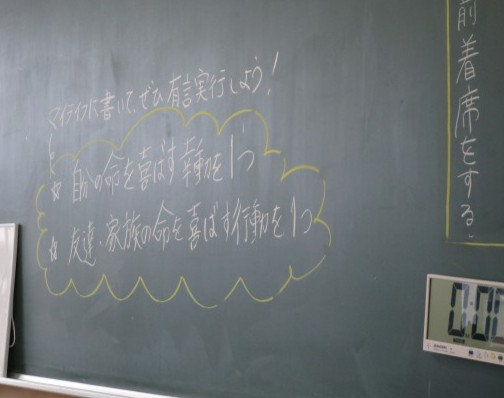 マイラインに書いて、ぜひ有言実行しよう!
☆ 自分の命を喜ばす行動を1つ
☆ 友達・家族の命を喜ばす行動を1つ
前着席をする。